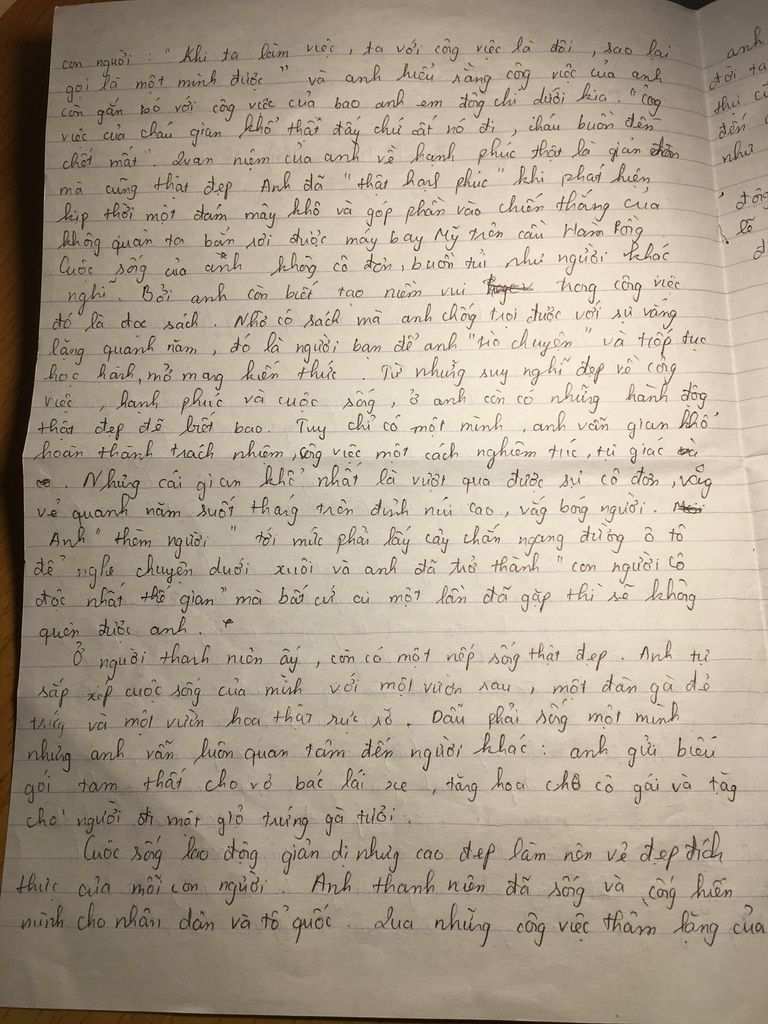 con người : " Khi ta làm việc , ta với công việc là đôi , sao lại
gọi là một mình được " và anh hiểu rằng công việc của anh
còn gắn bó với công việc của bao anh em đồng chí dưới kia . " Công
việc của cháu gian khổ thật đấy chứ cất nó đi , cháu buồn đến
chết mất " . Quan niệm của anh về hạnh phúc thật là giản đơn
mà cũng thật đẹp . Anh đã " thật hạnh phúc " khi phát hiện
kịp thời một đám mây khô và góp phần vào chiến thắng của
không quân ta bắn rơi được máy bay Mỹ trên cầu Hàm Rồng .
Cuộc sống của anh không cô đơn , buồn tủi như người khác
nghĩ . Bởi anh còn biết tạo niềm vui trong công việc
đó là đọc sách . Nhờ có sách mà anh chống trọi được với sự vắng
lặng quanh năm , đó là người bạn để anh " trò chuyện " và tiếp tục
học hành , mở mang kiến thức . Từ những suy nghĩ đẹp về công
việc , hạnh phúc và cuộc sống , ở anh còn có những hành động
thật đẹp đẽ biết bao . Tuy chỉ có một mình , anh vẫn gian khổ
hoàn thành trách nhiệm , công việc một cách nghiêm túc , tự giác
. Nhưng cái gian khổ nhất là vượt qua được sự cô đơn , vắng
vẻ quanh năm suốt tháng trên đỉnh núi cao , vắng bóng người .
Anh " thèm người " tới mức phải lấy cây chắn ngang đường ô tô
để nghe chuyện dưới xuôi và anh đã trở thành " con người cô
độc nhất thế gian " mà bất cứ ai một lần đã gặp thì sẽ không
quên được anh .
Ở người thanh niên ấy , còn có một nếp sống thật đẹp . Anh tự
sắp xếp cuộc sống của mình với một vườn rau , một đàn gà đẻ
trứng và một vườn hoa thật rực rỡ . Dẫu phải sống một mình
nhưng anh vẫn luôn quan tâm đến người khác : anh gửi biếu
gói tam thất cho vợ bác lái xe , tặng hoa cho cô gái và tặng
cho người đi một giỏ trứng gà tươi .
Cuộc sống lao động giản dị nhưng cao đẹp làm nên vẻ đẹp đích
thực của mỗi con người . Anh thanh niên đã sống và cống hiến
mình cho nhân dân và tổ quốc . Qua những công việc thầm lặng của
anh
đời ta
thụi
đến
như
động
lẽ